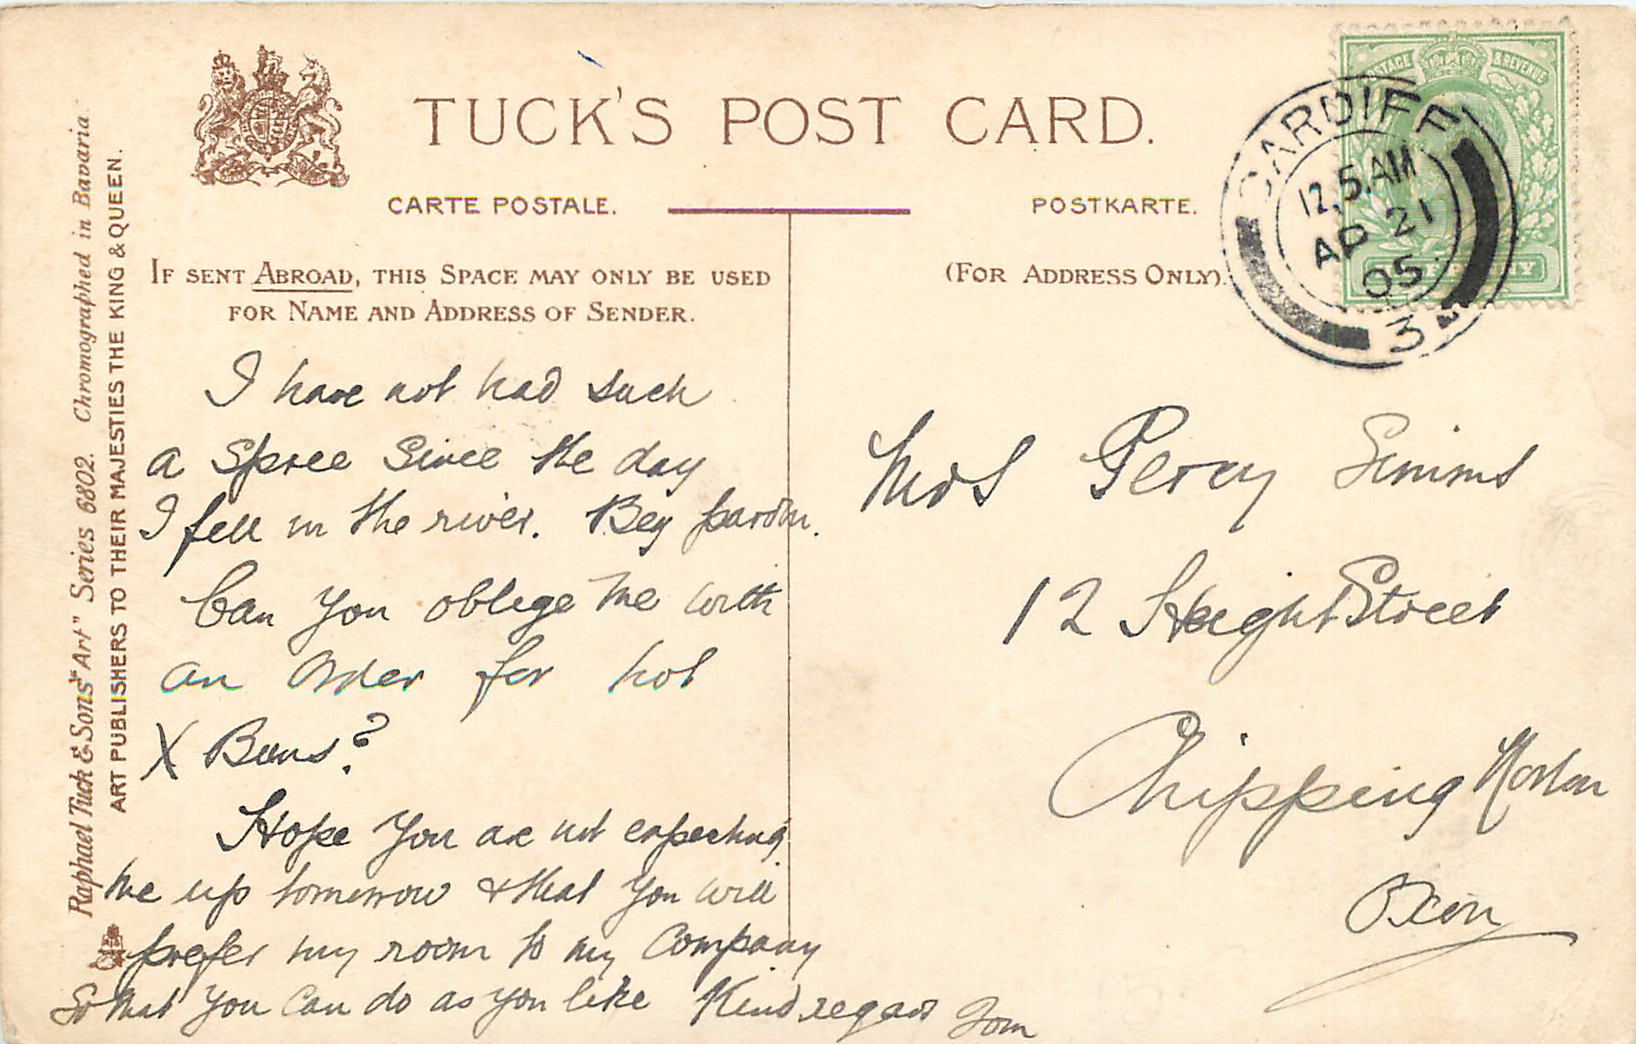 TUCK'S POST CARD.
CARTE POSTALE.
POSTKARTE.
IF SENT ABROAD, THIS SPACE MAY ONLY BE USED
FOR NAME AND ADDRESS OF SENDER.
(FOR ADDRESS ONLY).
POSTAGE & REVENUE
CARDIFF
12.5.AM
AP 21
05
3
Raphael Tuck & Sons' "Art" Series 6802. Chromographed in Bavaria.
ART PUBLISHERS TO THEIR MAJESTIES THE KING & QUEEN.
I have not had such
a spree since the day
I fell in the river. Beg pardon.
Can you oblige me with
an order for hot
X Buns?
Hope you are not expecting
me up tomorrow & that you will
prefer my room to my Company
So that you can do as you like Kind regards Tom
Mrs Percy Simms
12 Height Street
Chipping Norton
Oxon